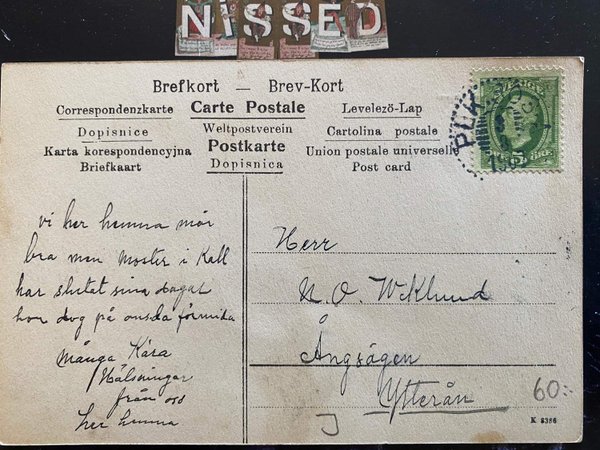 NISSED
Brefkort — Brev-Kort
Correspondenzkarte Carte Postale Levelező-Lap
Dopisnice Weltpostverein Cartolina postale
Karta korespondencyjna Postkarte Union postale universelle
Briefkaart Dopisnica Post card
vi her hemma mår
bra men Moster i Kall
har slutat sina dagar
hon dog på onsda förmida
Många Kära
Hälsningar
från oss
her hemma
Herr
N. O. Wiklund
Ångsågen
Ytterån
60:-
K 8386